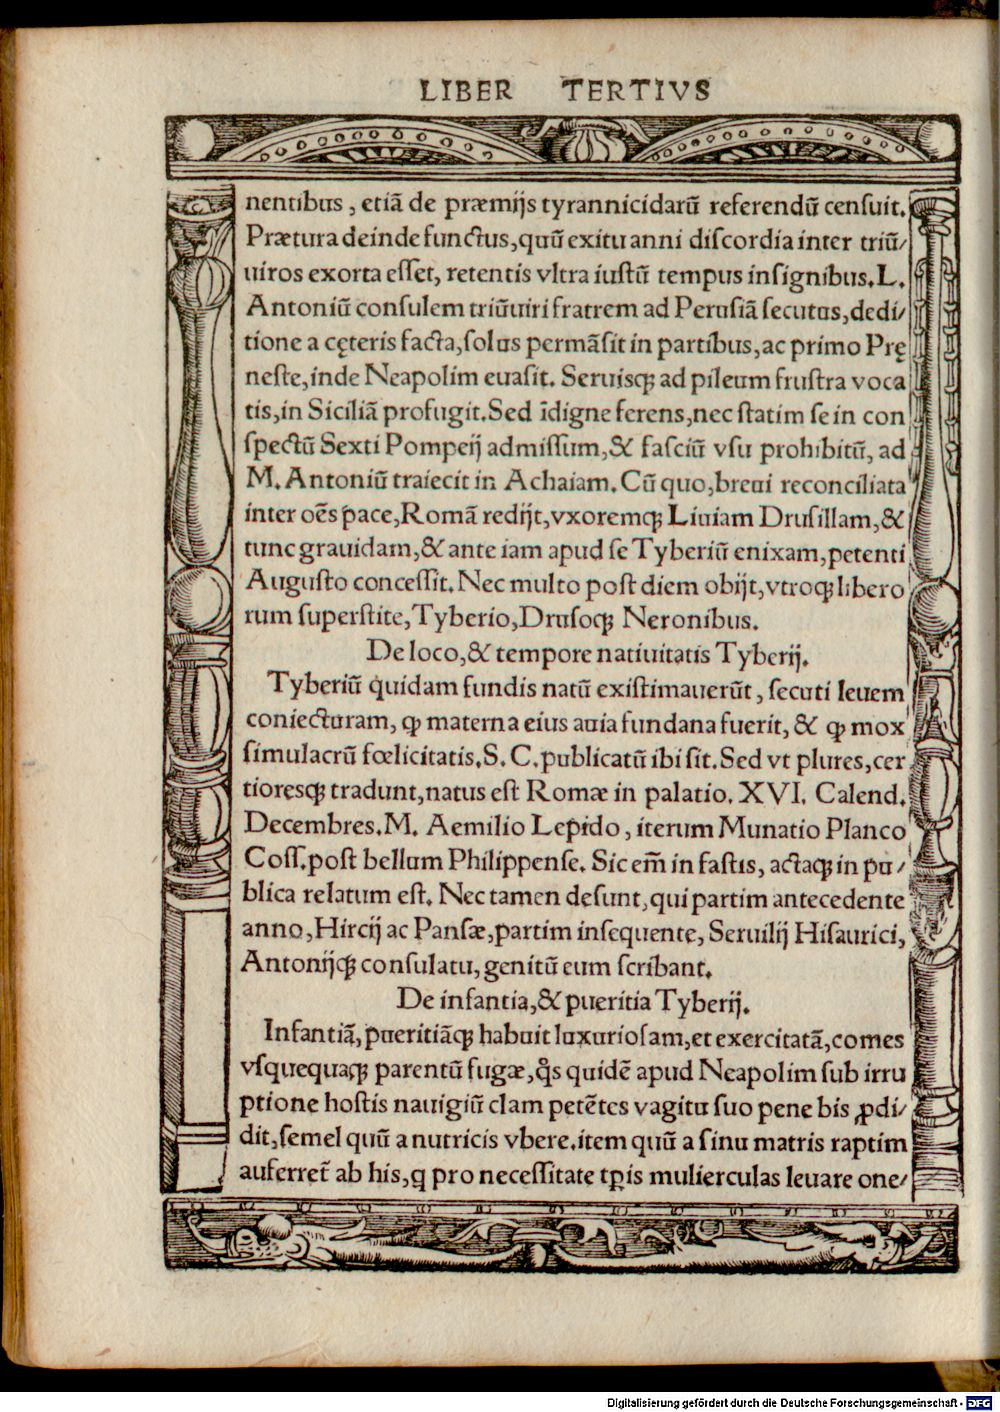 LIBER TERTIVS
nentibus, etiã de præmijs tyrannicidarũ referendũ censuit.
Prætura deinde functus, quũ exitu anni discordia inter triũ/
uiros exorta esset, retentis vltra iustũ tempus insignibus. L.
Antoniũ consulem triũuiri fratrem ad Perusiã secutus, dedi/
tione a cęteris facta, solus permãsit in partibus, ac primo PRę
neste, inde Neapolim euasit. Seruisq; ad pileum frustra voca
tis, in Siciliã profugit. Sed ĩdigne ferens, nec statim se in con
spectũ Sexti Pompeij admissum, & fasciũ vsu prohibitũ, ad
M. Antoniũ traiecit in Achaiam. Cũ quo, breui reconciliata
inter oẽs pace, Romã redijt, vxoremq; Liuiam Drusillam, &
tunc grauidam, & ante iam apud se Tyberiũ enixam, petenti
Augusto concessit. Nec multo post diem obijt, vtroq; libero
rum superstite, Tyberio, Drusoq; Neronibus.
De loco, & tempore natiuitatis Tyberij.
Tyberiũ quidam fundis natũ existimauerũt, secuti leuem
coniecturam, ꝙ materna eius auia fundana fuerit, & ꝙ mox
simulacrũ fœlicitatis. S. C. publicatũ ibi sit. Sed vt plures, cer
tioresq; tradunt, natus est Romæ in palatio. XVI. Calend.
Decembres. M. Aemilio Lepido, iterum Munatio Planco
Coss. post bellum Philippense. Sic em̃ in fastis, actaq; in pu/
blica relatum est. Nec tamen desunt, qui partim antecedente
anno, Hircij ac Pansæ, partim insequente, Seruilij Hisaurici,
Antonijq; consulatu, genitũ eum scribant.
De infantia, & pueritia Tyberij.
Infantiã, pueritiãq; habuit luxuriosam, et exercitatã, comes
vsquequaq; parentũ fugæ, q̊s quidẽ apud Neapolim sub irru
ptione hostis nauigiũ clam petẽtes vagitu suo pene bis ꝓdi/
dit, semel quũ a nutricis vbere. item quũ a sinu matris raptim
auferret̃ ab his, q pro necessitate tp̃is mulierculas leuare one/
Digitalisierung gefördert durch die Deutsche Forschungsgemeinschaft - DFG